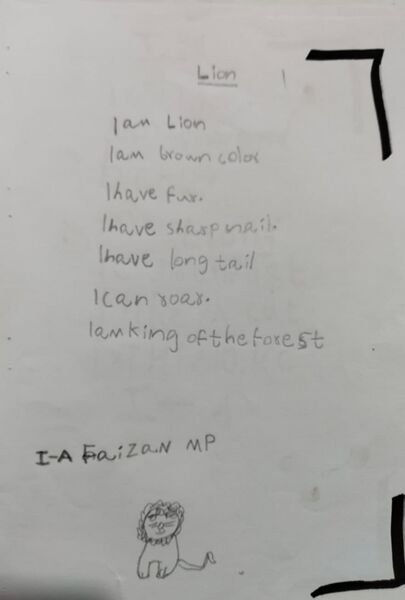 Lion
I am Lion
I am brown color
I have fur.
I have sharp nail.
I have long tail
I can roar.
I am king of the forest
I-A Faizan MP